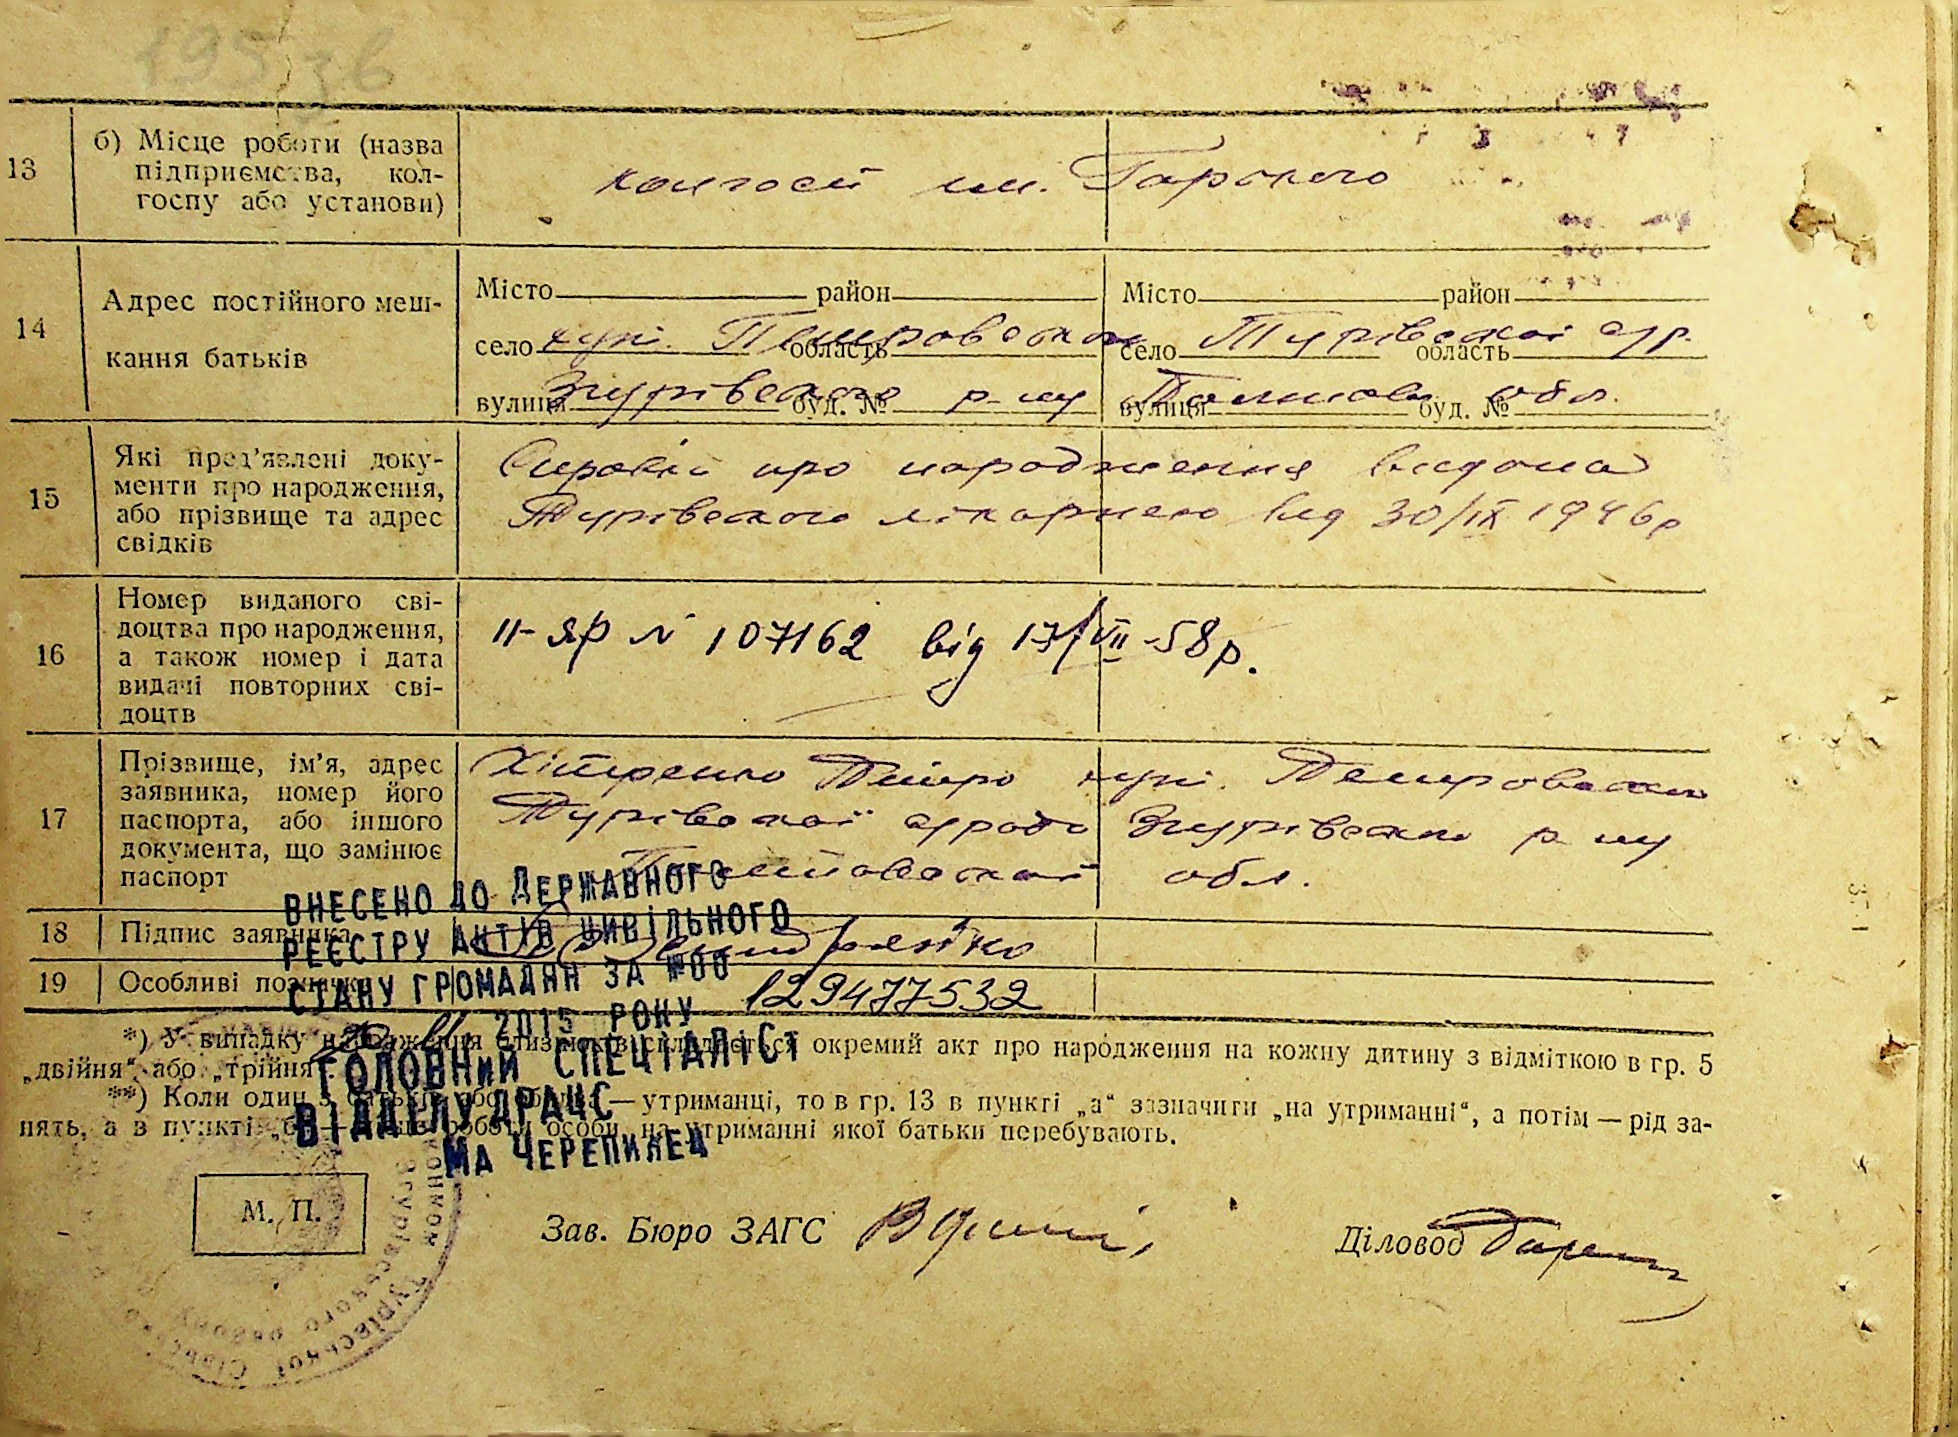 13
б) Місце роботи (назва
підприємства, кол-
госпу або установи)
колгосп ім. Горького
14
Адрес постійного меш-
кання батьків
Місто район Місто район
село область село область
хут. Петровського Турівської с/р.
вулиця буд. № вулиця буд. №
Згурівського р-ну Полтавськ обл.
15
Які пред'явлені доку-
менти про народження,
або прізвище та адрес
свідків
про народження видана
Турівською лікарнею від 30/IX 1946р
16
Номер виданого сві-
доцтва про народження,
а також номер і дата
видачі повторних сві-
доцтв
II-ЯР № 107162 від 17/VII-58р.
17
Прізвище, ім'я, адрес
заявника, номер його
паспорта, або іншого
документа, що замінює
паспорт
хут.
Турівської Згурівського р-ну
Полтавської обл.
18
Підпис заявника
19
Особливі позначки
129477532
ВНЕСЕНО ДО ДЕРЖАВНОГО
РЕЄСТРУ АКТІВ ЦИВІЛЬНОГО
СТАНУ ГРОМАДЯН ЗА №00
2015 РОКУ
ГОЛОВНИЙ СПЕЦІАЛІСТ
ВІДДІЛУ ДРАЦС
МА ЧЕРЕПИНЕЦ
*) У випадку народження близнюків складається окремий акт про народження на кожну дитину з відміткою в гр. 5
„двійня“ або „трійня“.
**) Коли один з батьків або обидва — утриманці, то в гр. 13 в пункті „а“ зазначити „на утриманні“, а потім — рід за-
нять, а в пункті „б“ — місце роботи особи, на утриманні якої батьки перебувають.
М. П.
Зав. Бюро ЗАГС
Діловод